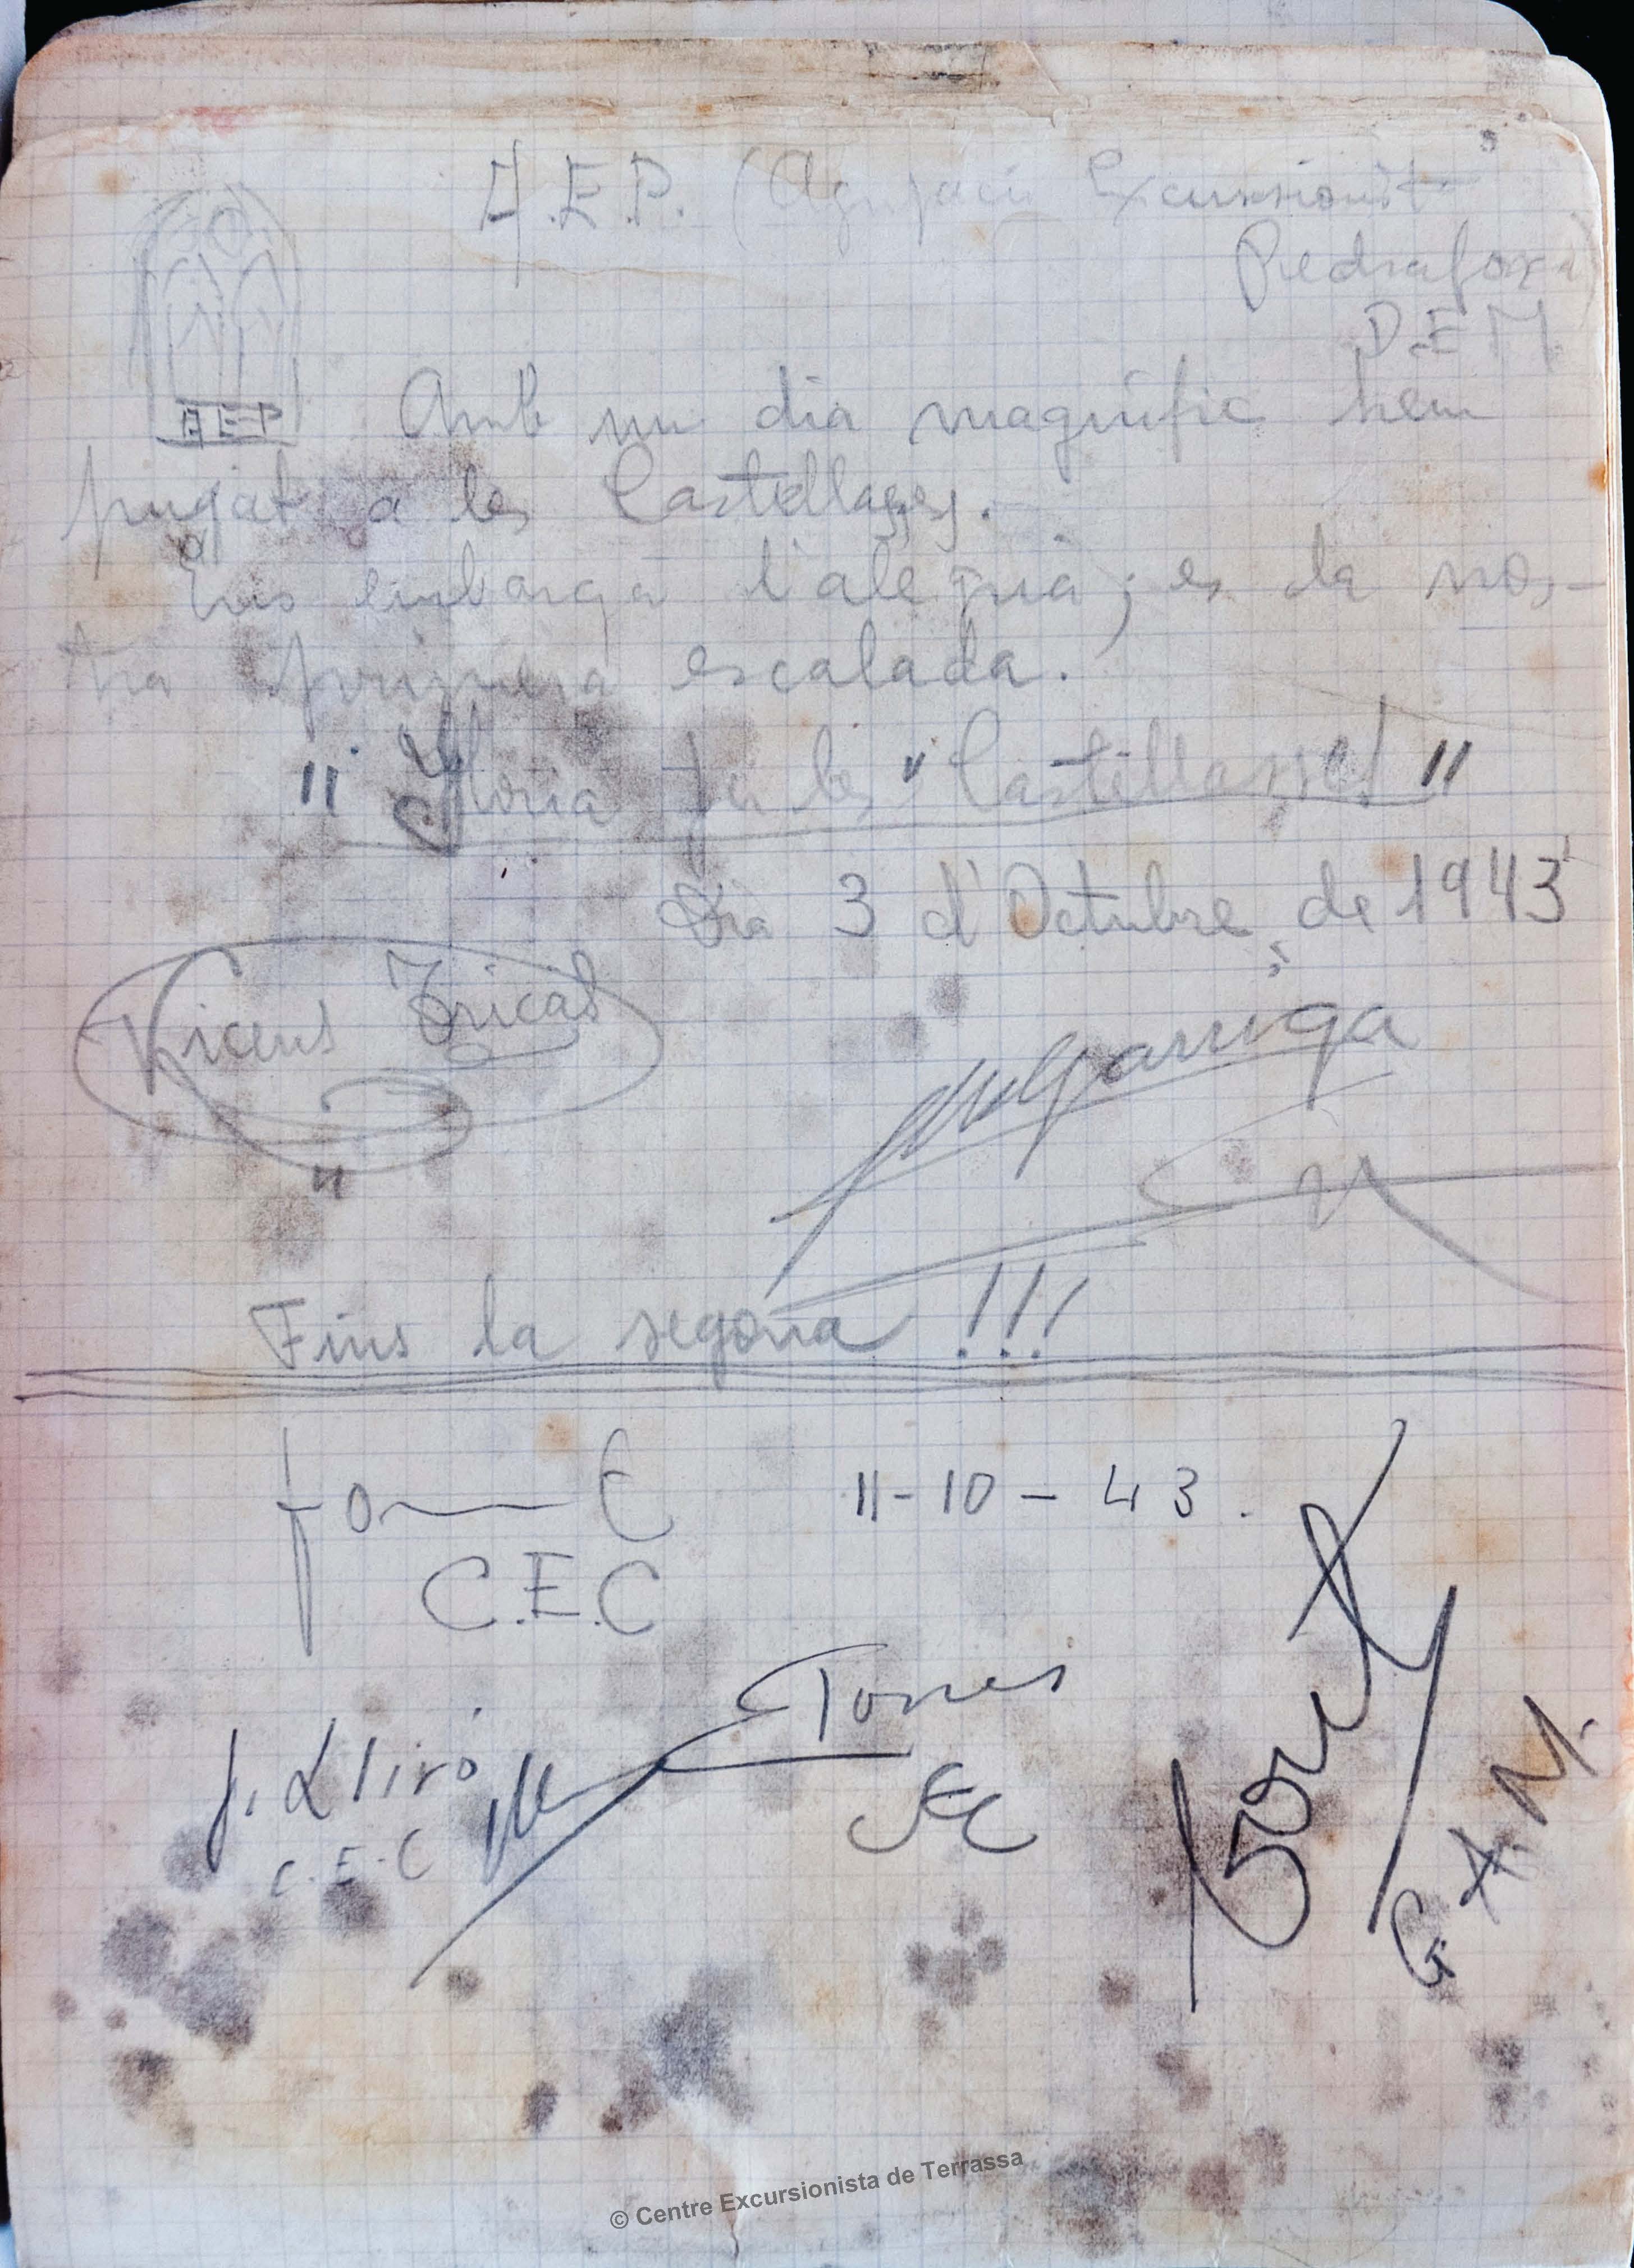 A.E.P. (Agrupació Excursionist
Pedraforca)
D.E M
A E P
Amb un dia magnífic hem
pugat a les Castellasses.
Ens embarga l'alegria; es la nos-
tra primera escalada.
" Gloria a les "Castellasses! "
Dia 3 d'Octubre de 1943
Vicens Tricas
Garriga
Fins la segona !!!
11-10-43.
C.E.C
Torres
J. Lliró
C.E.C
CEC
G.A.M.
© Centre Excursionista de Terrassa